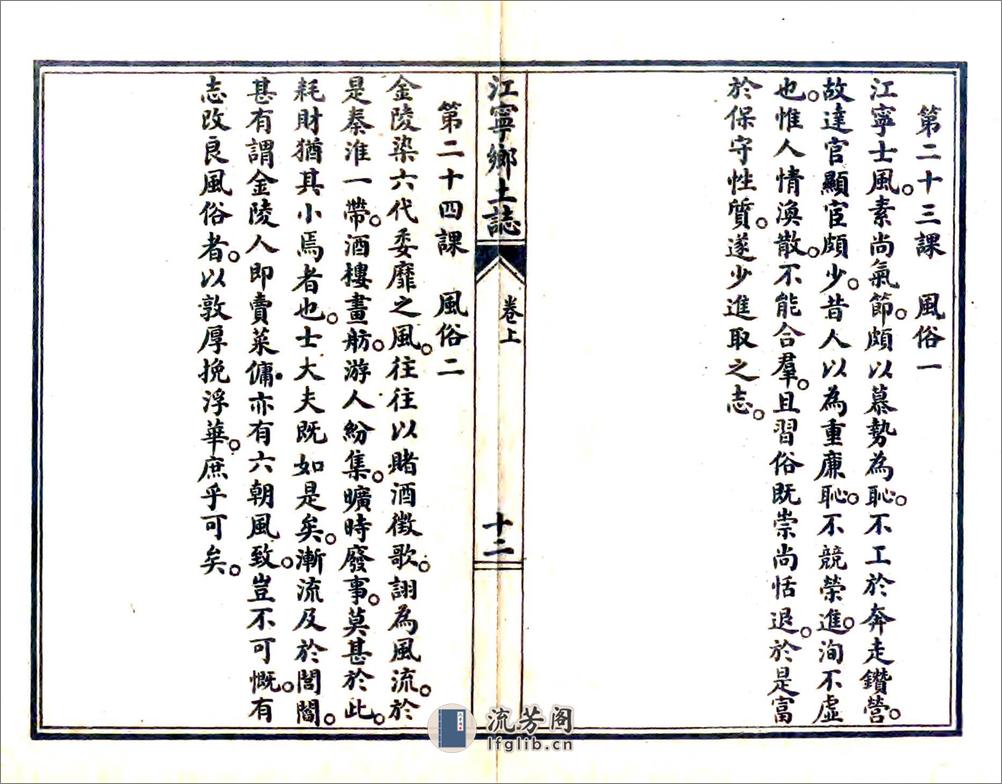 第二十三課 風俗一
江寧士風。素尚氣節。頗以慕勢為恥。不工於奔走鑽營。
故達官顯宦頗少。昔人以為重廉恥。不競榮進。洵不虛
也。惟人情渙散。不能合羣。且習俗既崇尚恬退。於是富
於保守性質。遂少進取之志。
江寧鄉土誌
卷上
十二
第二十四課 風俗二
金陵染六代委靡之風。往往以賭酒徵歌。詡為風流。於
是秦淮一帶。酒樓畫舫。游人紛集。曠時廢事。莫甚於此。
耗財猶其小焉者也。士大夫既如是矣。漸流及於閭閻。
甚有謂金陵人即賣菜傭。亦有六朝風致。豈不可慨。有
志改良風俗者。以敦厚挽浮華。庶乎可矣。
流芳阁
lfglib.cn